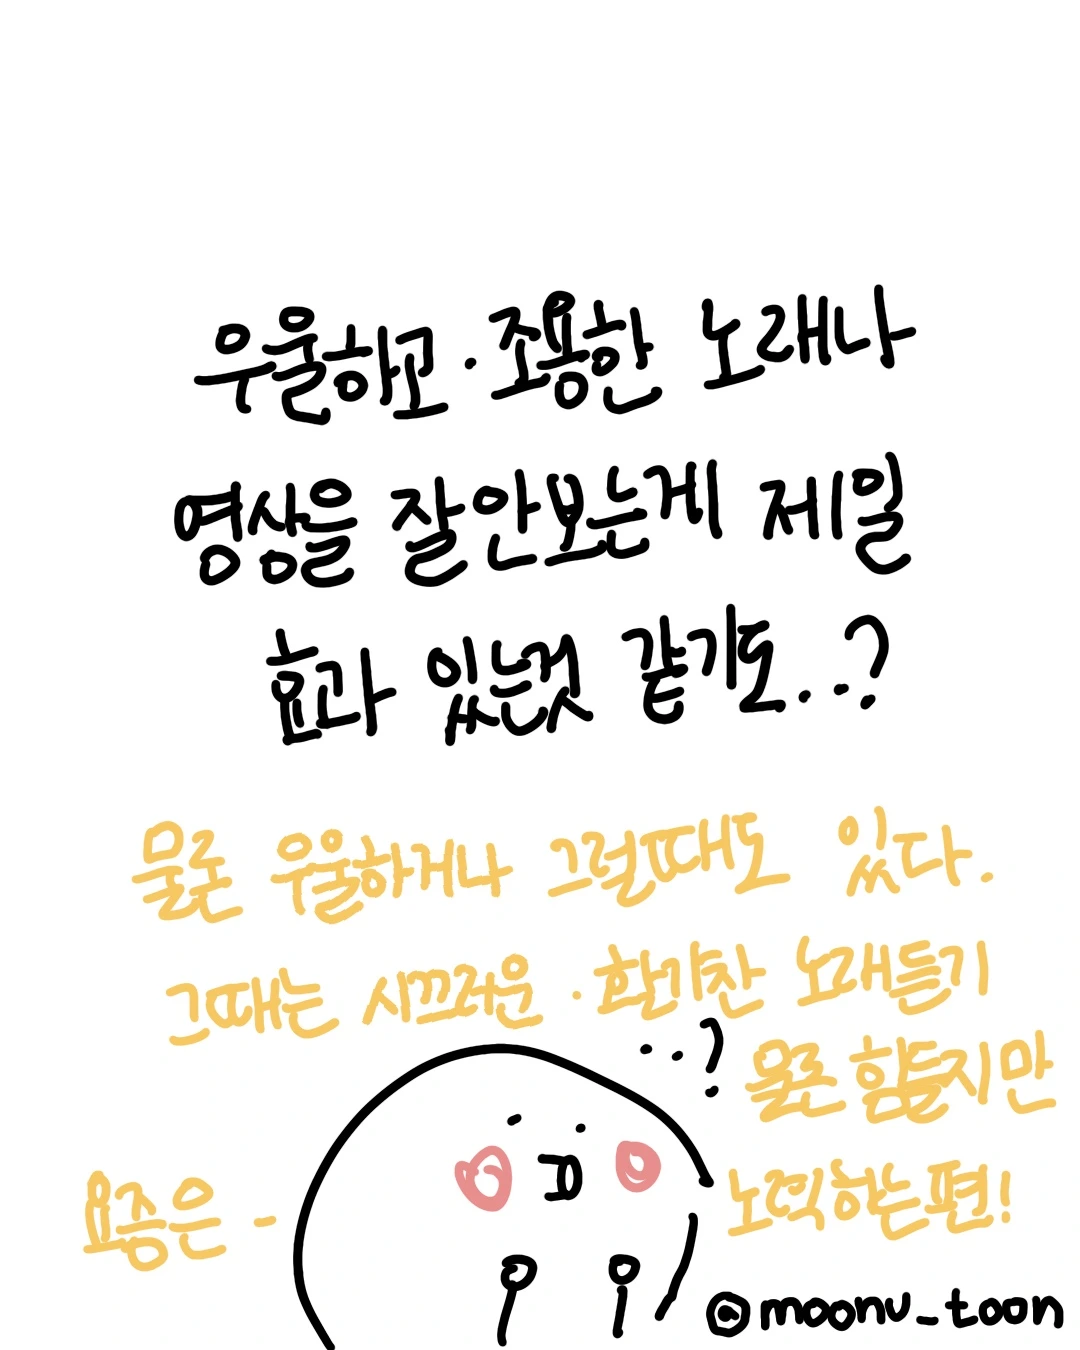 우울하고·조용한 노래나
영상을 잘안보는게 제일
효과 있는것 같기도...?
물론 우울하거나 그럴때도 있다.
그때는 시끄러운·활기찬 노래듣기
..?
물론 힘들지만
요즘은 -
노력하는편!
@moonu_toon